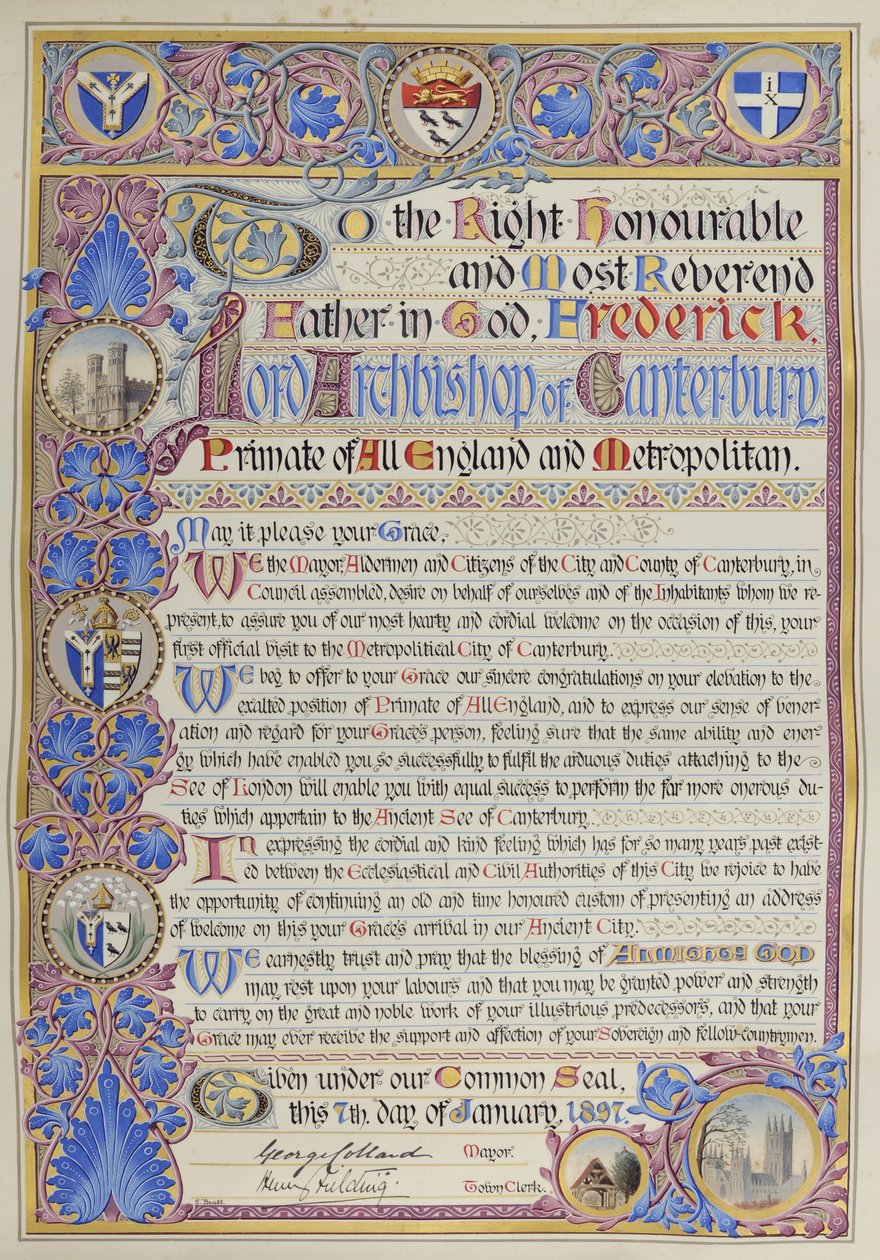 i
X
To the Right Honourable
and Most Reverend
Father in God, Frederick,
Lord Archbishop of Canterbury,
Primate of All England and Metropolitan.
May it please your Grace,
WE the Mayor, Aldermen and Citizens of the City and County of Canterbury, in
Council assembled, desire on behalf of ourselves and of the Inhabitants whom we re-
present, to assure you of our most hearty and cordial welcome on the occasion of this, your
first official visit to the Metropolitical City of Canterbury.
WE beg to offer to your Grace our sincere congratulations on your elevation to the
exalted position of Primate of All England, and to express our sense of vener-
ation and regard for your Grace's person, feeling sure that the same ability and ener-
gy which have enabled you so successfully to fulfil the arduous duties attaching to the
See of London will enable you with equal success to perform the far more onerous du-
ties which appertain to the Ancient See of Canterbury.
In expressing the cordial and kind feeling which has for so many years past exist-
ed between the Ecclesiastical and Civil Authorities of this City we rejoice to have
the opportunity of continuing an old and time honoured custom of presenting an address
of welcome on this your Grace's arrival in our Ancient City.
WE earnestly trust and pray that the blessing of ALMIGHTY GOD
may rest upon your labours and that you may be granted power and strength
to carry on the great and noble work of your illustrious predecessors, and that your
Grace may ever receive the support and affection of your Sovereign and fellow-countrymen.
Given under our Common Seal,
this 7th. day of January, 1897.
George Collard Mayor.
Henry Fielding. Town Clerk.